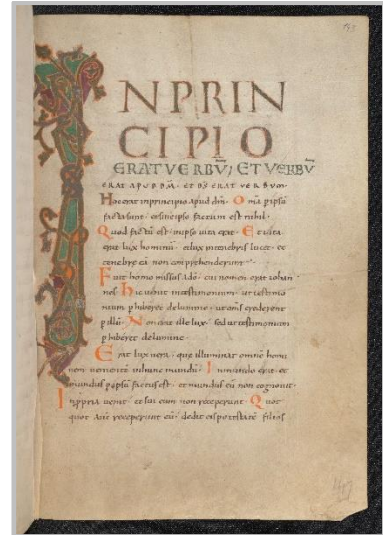 143
INPRIN
CIPIO
ERATVERBŪ; ETVERBŪ
ERAT APUD DM̄. ET DS̄ ERAT VERBUM.
Hoc erat inprincipio apud dm̄. Omīa p ipsū
facta sunt. et sine ipso factum est nihil.
Quod factū est. inipso uita erat. Et uita
erat lux hominū. et lux intenebris lucet. et
tenebre eā non comprehenderunt.
Fuit homo missus adō. cui nomen erat iohan
nes. hic uenit intestimonium. ut testimo
nium phiberet delumine. ut om̄s crederent
p illū. Non erat ille lux. sed ut testimonium
phiberet delumine.
Erat lux uera. que illuminat omnē homi
nem uenientē inhunc mundū. Inmundo erat. et
mundus p ipsū factus est. et mundus eū non cognouit.
Inppria uenit. et sui eum non receperunt. Quot
quot autē receperunt eū. dedit eis potestatē filios